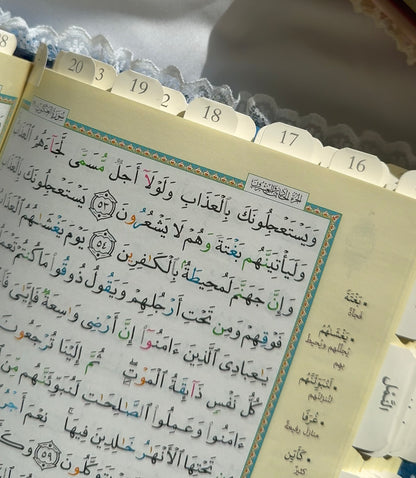 20 3
19 2
18
17
16
سُورَةُ العَنكَبُوتِ
الجُزْءُ الحَادِي وَالعِشْرُونَ
وَيَسْتَعْجِلُونَكَ بِٱلْعَذَابِ وَلَوْلَآ أَجَلٌ مُّسَمًّى لَّجَآءَهُمُ ٱلْعَذَابُ
وَلَيَأْتِيَنَّهُم بَغْتَةً وَهُمْ لَا يَشْعُرُونَ ٥٣ يَسْتَعْجِلُونَكَ بِٱلْعَذَابِ
وَإِنَّ جَهَنَّمَ لَمُحِيطَةٌۢ بِٱلْكَٰفِرِينَ ٥٤ يَوْمَ يَغْشَىٰهُمُ ٱلْعَذَابُ
فَوْقِهِمْ وَمِن تَحْتِ أَرْجُلِهِمْ وَيَقُولُ ذُوقُوا۟ مَا كُنتُمْ
يَٰعِبَادِىَ ٱلَّذِينَ ءَامَنُوٓا۟ إِنَّ أَرْضِى وَٰسِعَةٌ فَإِيَّٰىَ
كُلُّ نَفْسٍ ذَآئِقَةُ ٱلْمَوْتِ ثُمَّ إِلَيْنَا تُرْجَعُونَ
ءَامَنُوا۟ وَعَمِلُوا۟ ٱلصَّٰلِحَٰتِ لَنُبَوِّئَنَّهُم مِّنَ
تَحْتِهَا ٱلْأَنْهَٰرُ خَٰلِدِينَ فِيهَا نِعْمَ أَجْرُ
يَتَوَكَّلُونَ ٥٩
• بَغْتَةً
فجأة
• يَغْشَىٰهُمُ
يجللهم ويحيط
بهم
• لَنُبَوِّئَنَّهُم
لننزلنهم
• غُرَفًا
منازل رفيعة
• كَأَيِّن
كثير
النمل